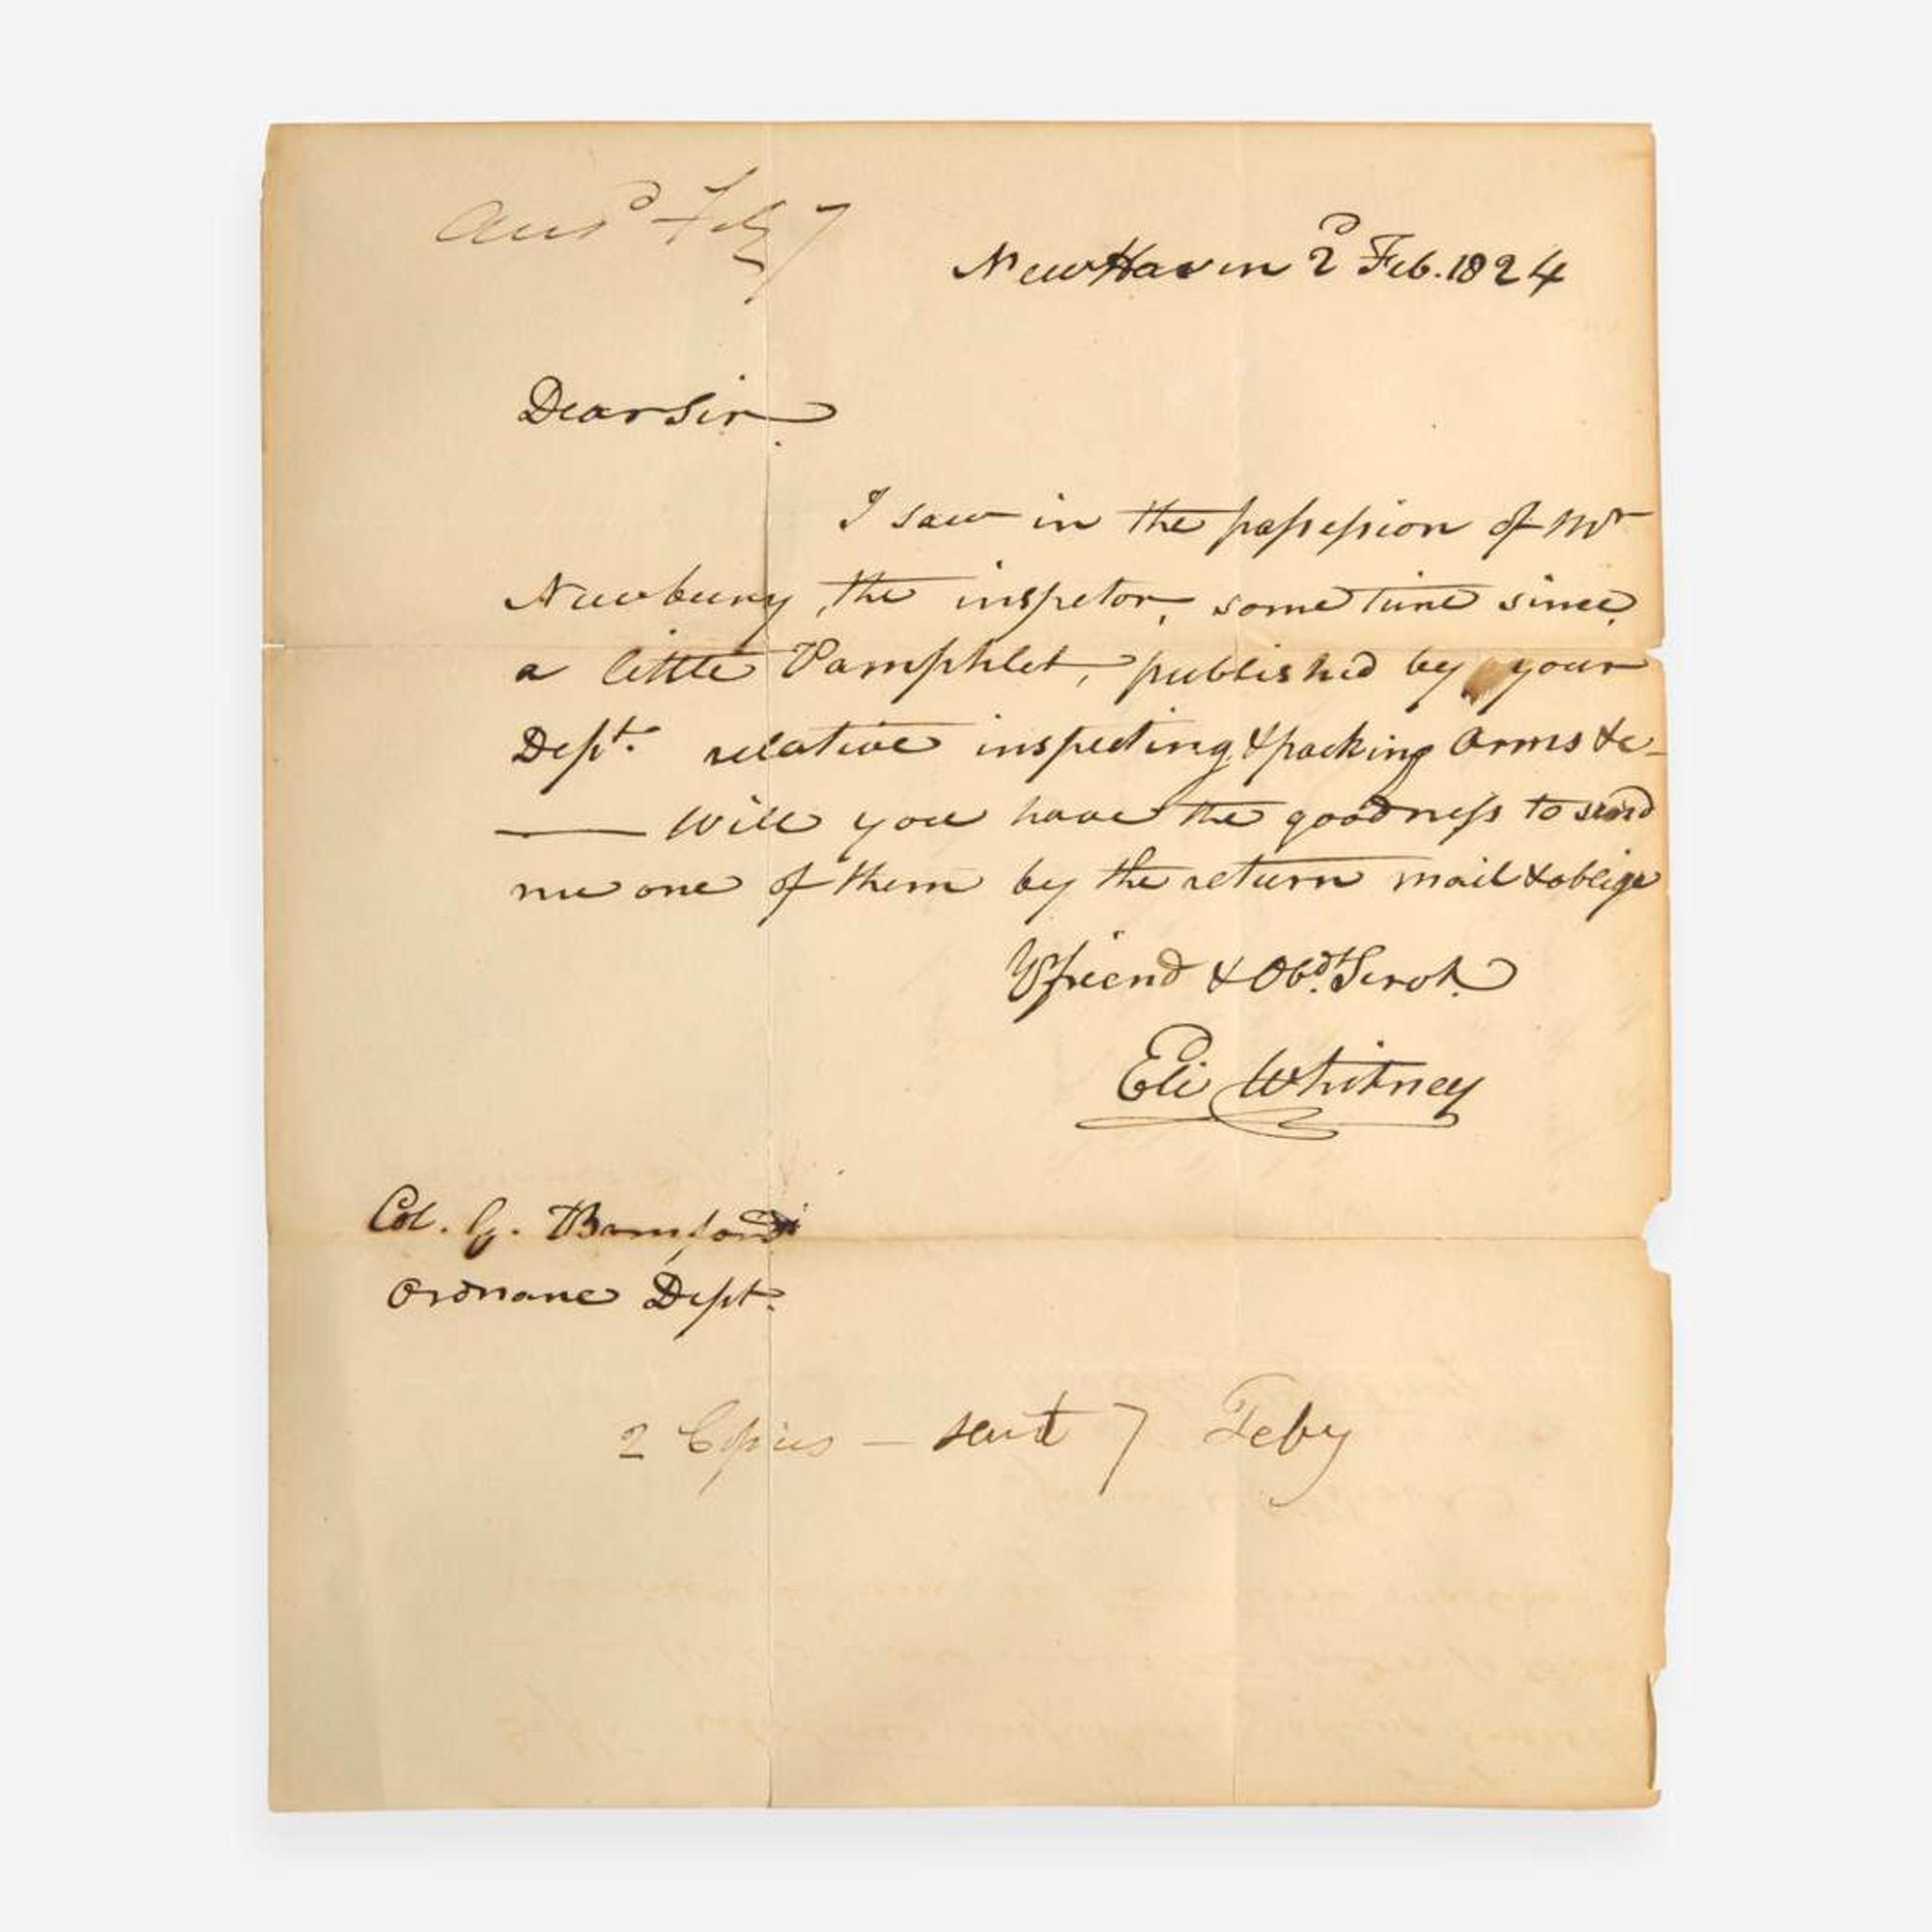 Ansd Feby 7
New Haven 2d Feb. 1824
Dear Sir.
I saw in the possession of Mr
Newbury, the inspetor, some time since,
a little Pamphlet, published by your
Dept. relative inspecting & packing Arms &c
— Will you have the goodness to send
me one of them by the return mail & oblige
Yr friend & Obdt. Servt.
Eli Whitney
Col. G. Bomford
Ordnance Dept.
2 Copies — sent 7 Feby